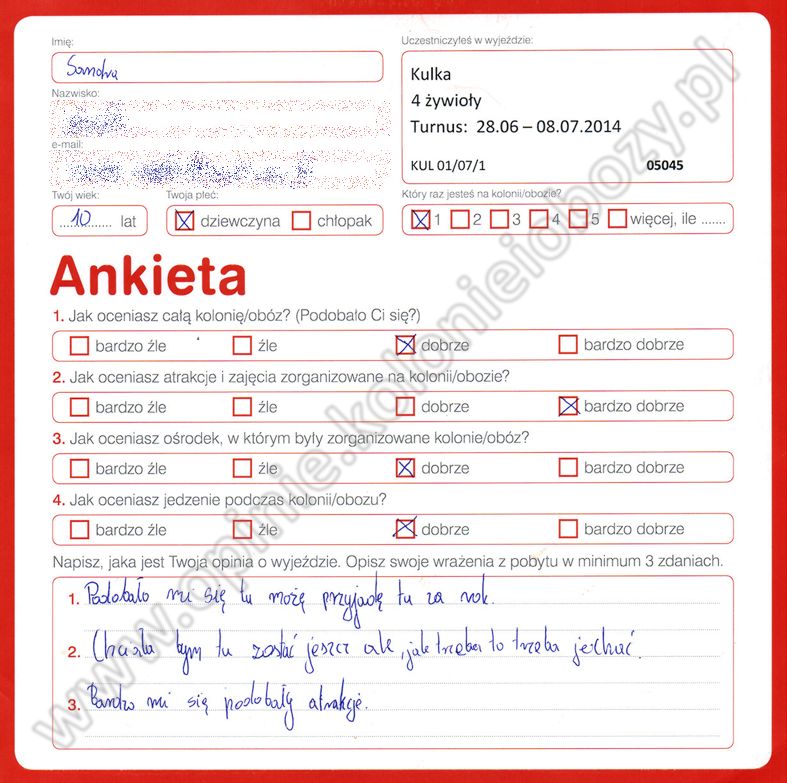 Imię:
Sandra
Nazwisko:
e-mail:
Twój wiek:
10 lat
Twoja płeć:
dziewczyna chłopak
Uczestniczyłeś w wyjeździe:
Kulka
4 żywioły
Turnus: 28.06 – 08.07.2014
KUL 01/07/1 05045
Który raz jesteś na kolonii/obozie?
1 2 3 4 5 więcej, ile .......
Ankieta
1. Jak oceniasz całą kolonię/obóz? (Podobało Ci się?)
bardzo źle źle dobrze bardzo dobrze
2. Jak oceniasz atrakcje i zajęcia zorganizowane na kolonii/obozie?
bardzo źle źle dobrze bardzo dobrze
3. Jak oceniasz ośrodek, w którym były zorganizowane kolonie/obóz?
bardzo źle źle dobrze bardzo dobrze
4. Jak oceniasz jedzenie podczas kolonii/obozu?
bardzo źle źle dobrze bardzo dobrze
Napisz, jaka jest Twoja opinia o wyjeździe. Opisz swoje wrażenia z pobytu w minimum 3 zdaniach.
1. Podobało mi się tu możę przyjadę tu za rok.
2. Chciała bym tu zostać jeszcz ale, jak trzeba to trzeba jechać.
3. Bardzo mi się podobały atrakcje.
www.opinie.kolonieiobozy.pl